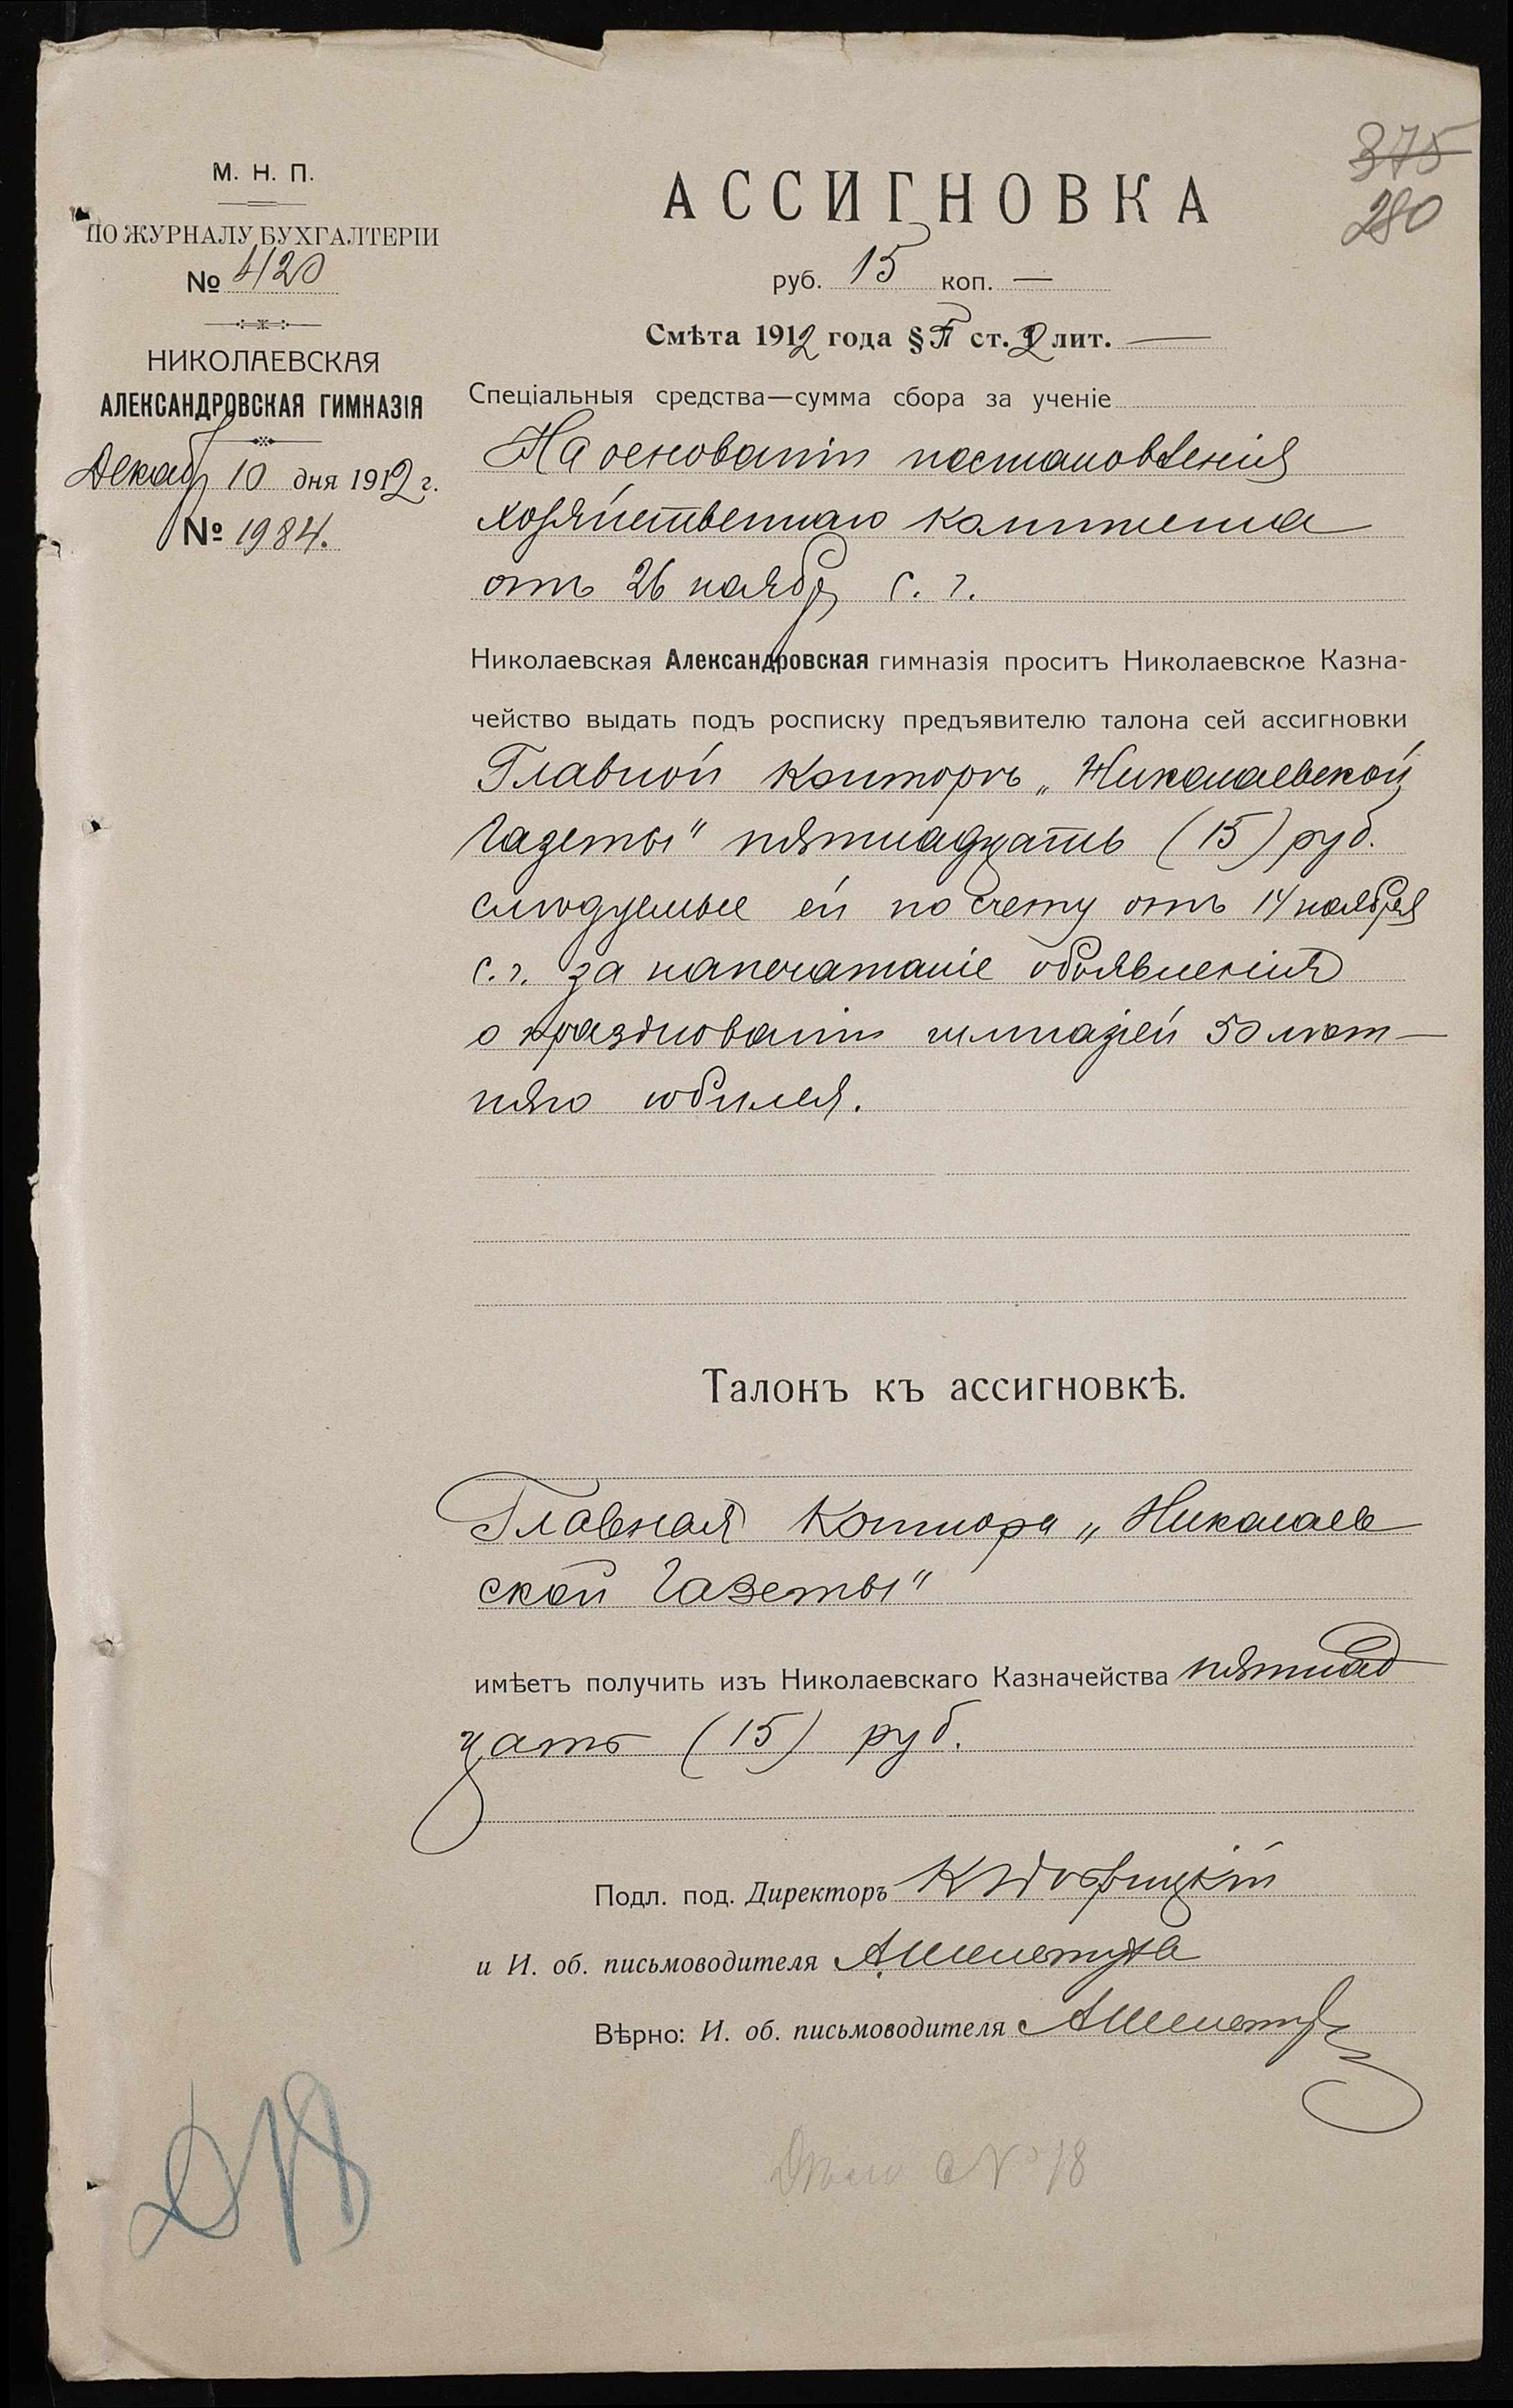 375
280
М. Н. П.
ПО ЖУРНАЛУ БУХГАЛТЕРІИ
№ 420
НИКОЛАЕВСКАЯ
АЛЕКСАНДРОВСКАЯ ГИМНАЗІЯ
Декабр 10 дня 1912 г.
№ 1984.
АССИГНОВКА
руб. 15 коп. —
Смѣта 1912 года § ст. 2 лит. —
Спеціальныя средства—сумма сбора за ученіе
На основаніи постановленія
хозяйственнаго комитета
отъ 26 ноябр с. г.
Николаевская Александровская гимназія проситъ Николаевское Казна-
чейство выдать подъ росписку предъявителю талона сей ассигновки
Главной Конторѣ „Николаевской
Газеты" пятнадцать (15) руб.
слѣдуемые ей по счету отъ 14 ноября
с. г. за напечатаніе объявленія
о праздновани гимназіей 50 лѣт-
няго юбилея.
Талонъ къ ассигновкѣ.
Главная Контора „Николаев
ской Газеты"
имѣетъ получить изъ Николаевскаго Казначейства пятнад
цать (15) руб.
Подл. под. Директоръ
и И. об. письмоводителя А. Шелотуха
Вѣрно: И. об. письмоводителя
№ 18